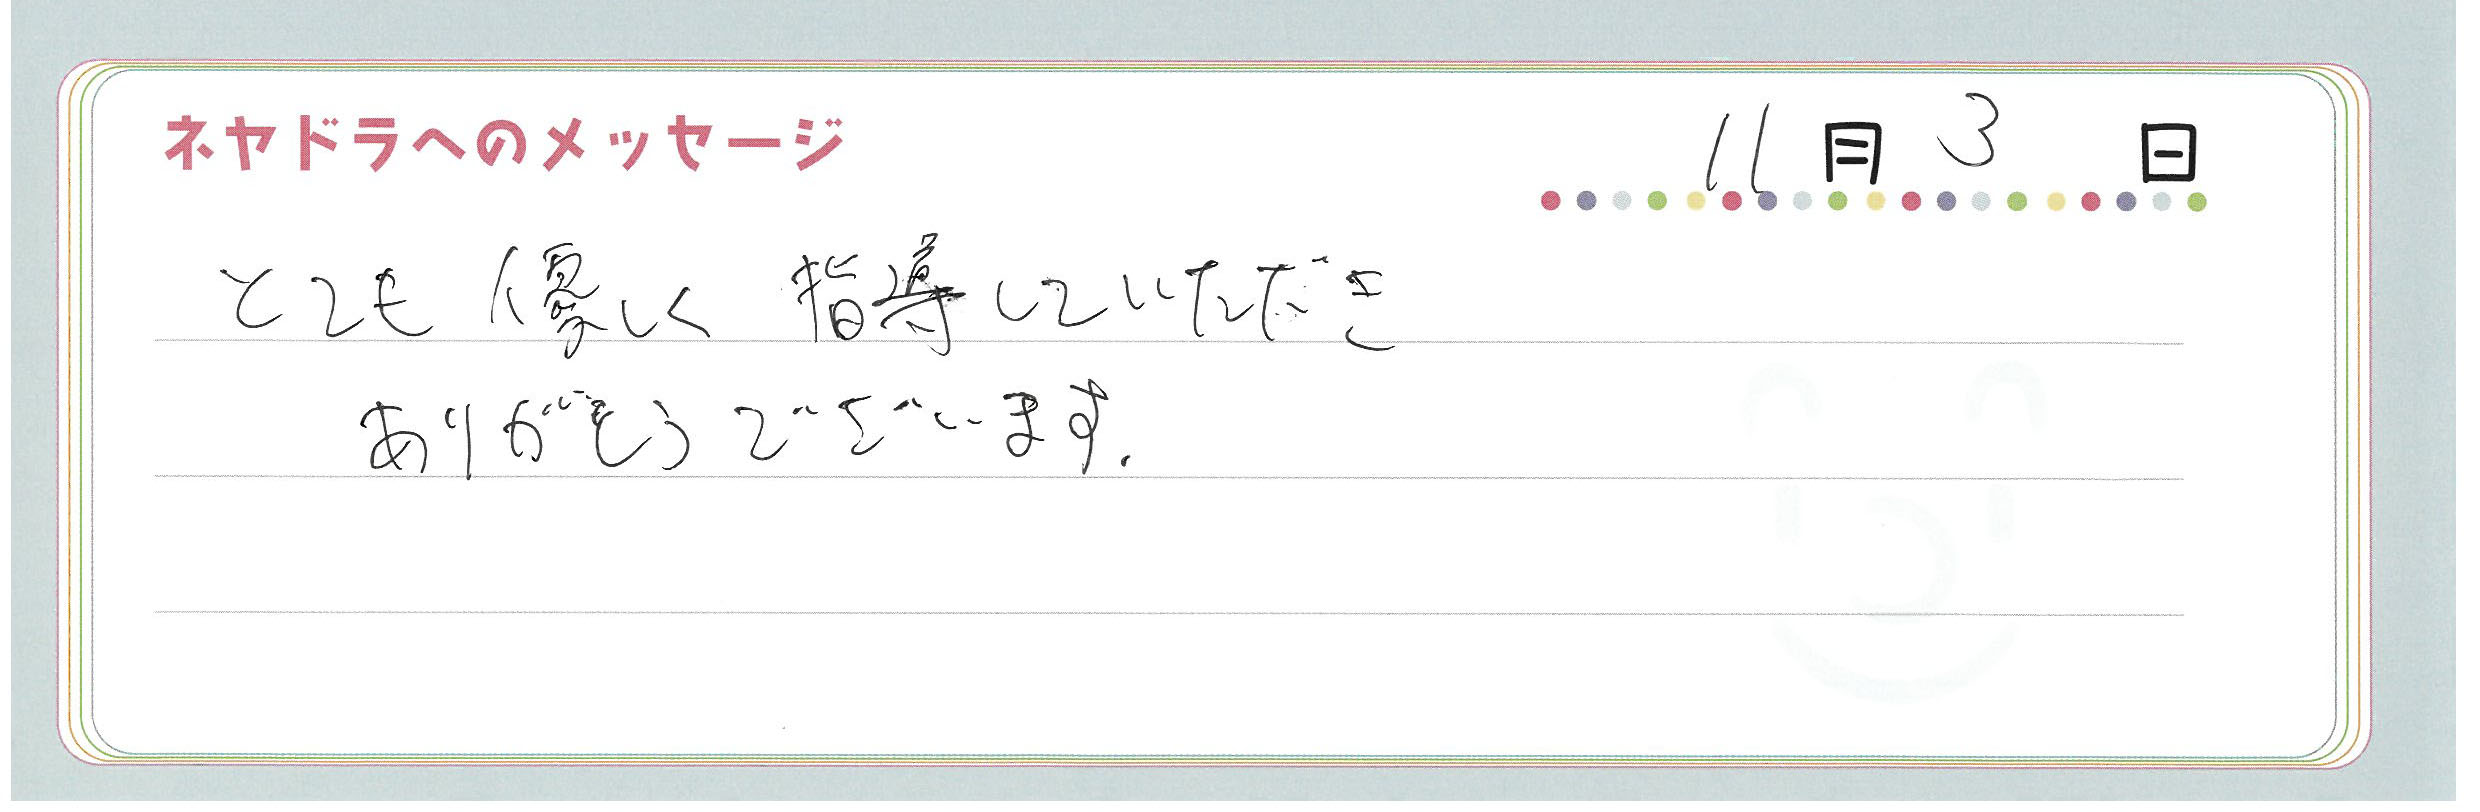 ネヤドラへのメッセージ 11月3日
とても優しく指導していただき
ありがとうございます.